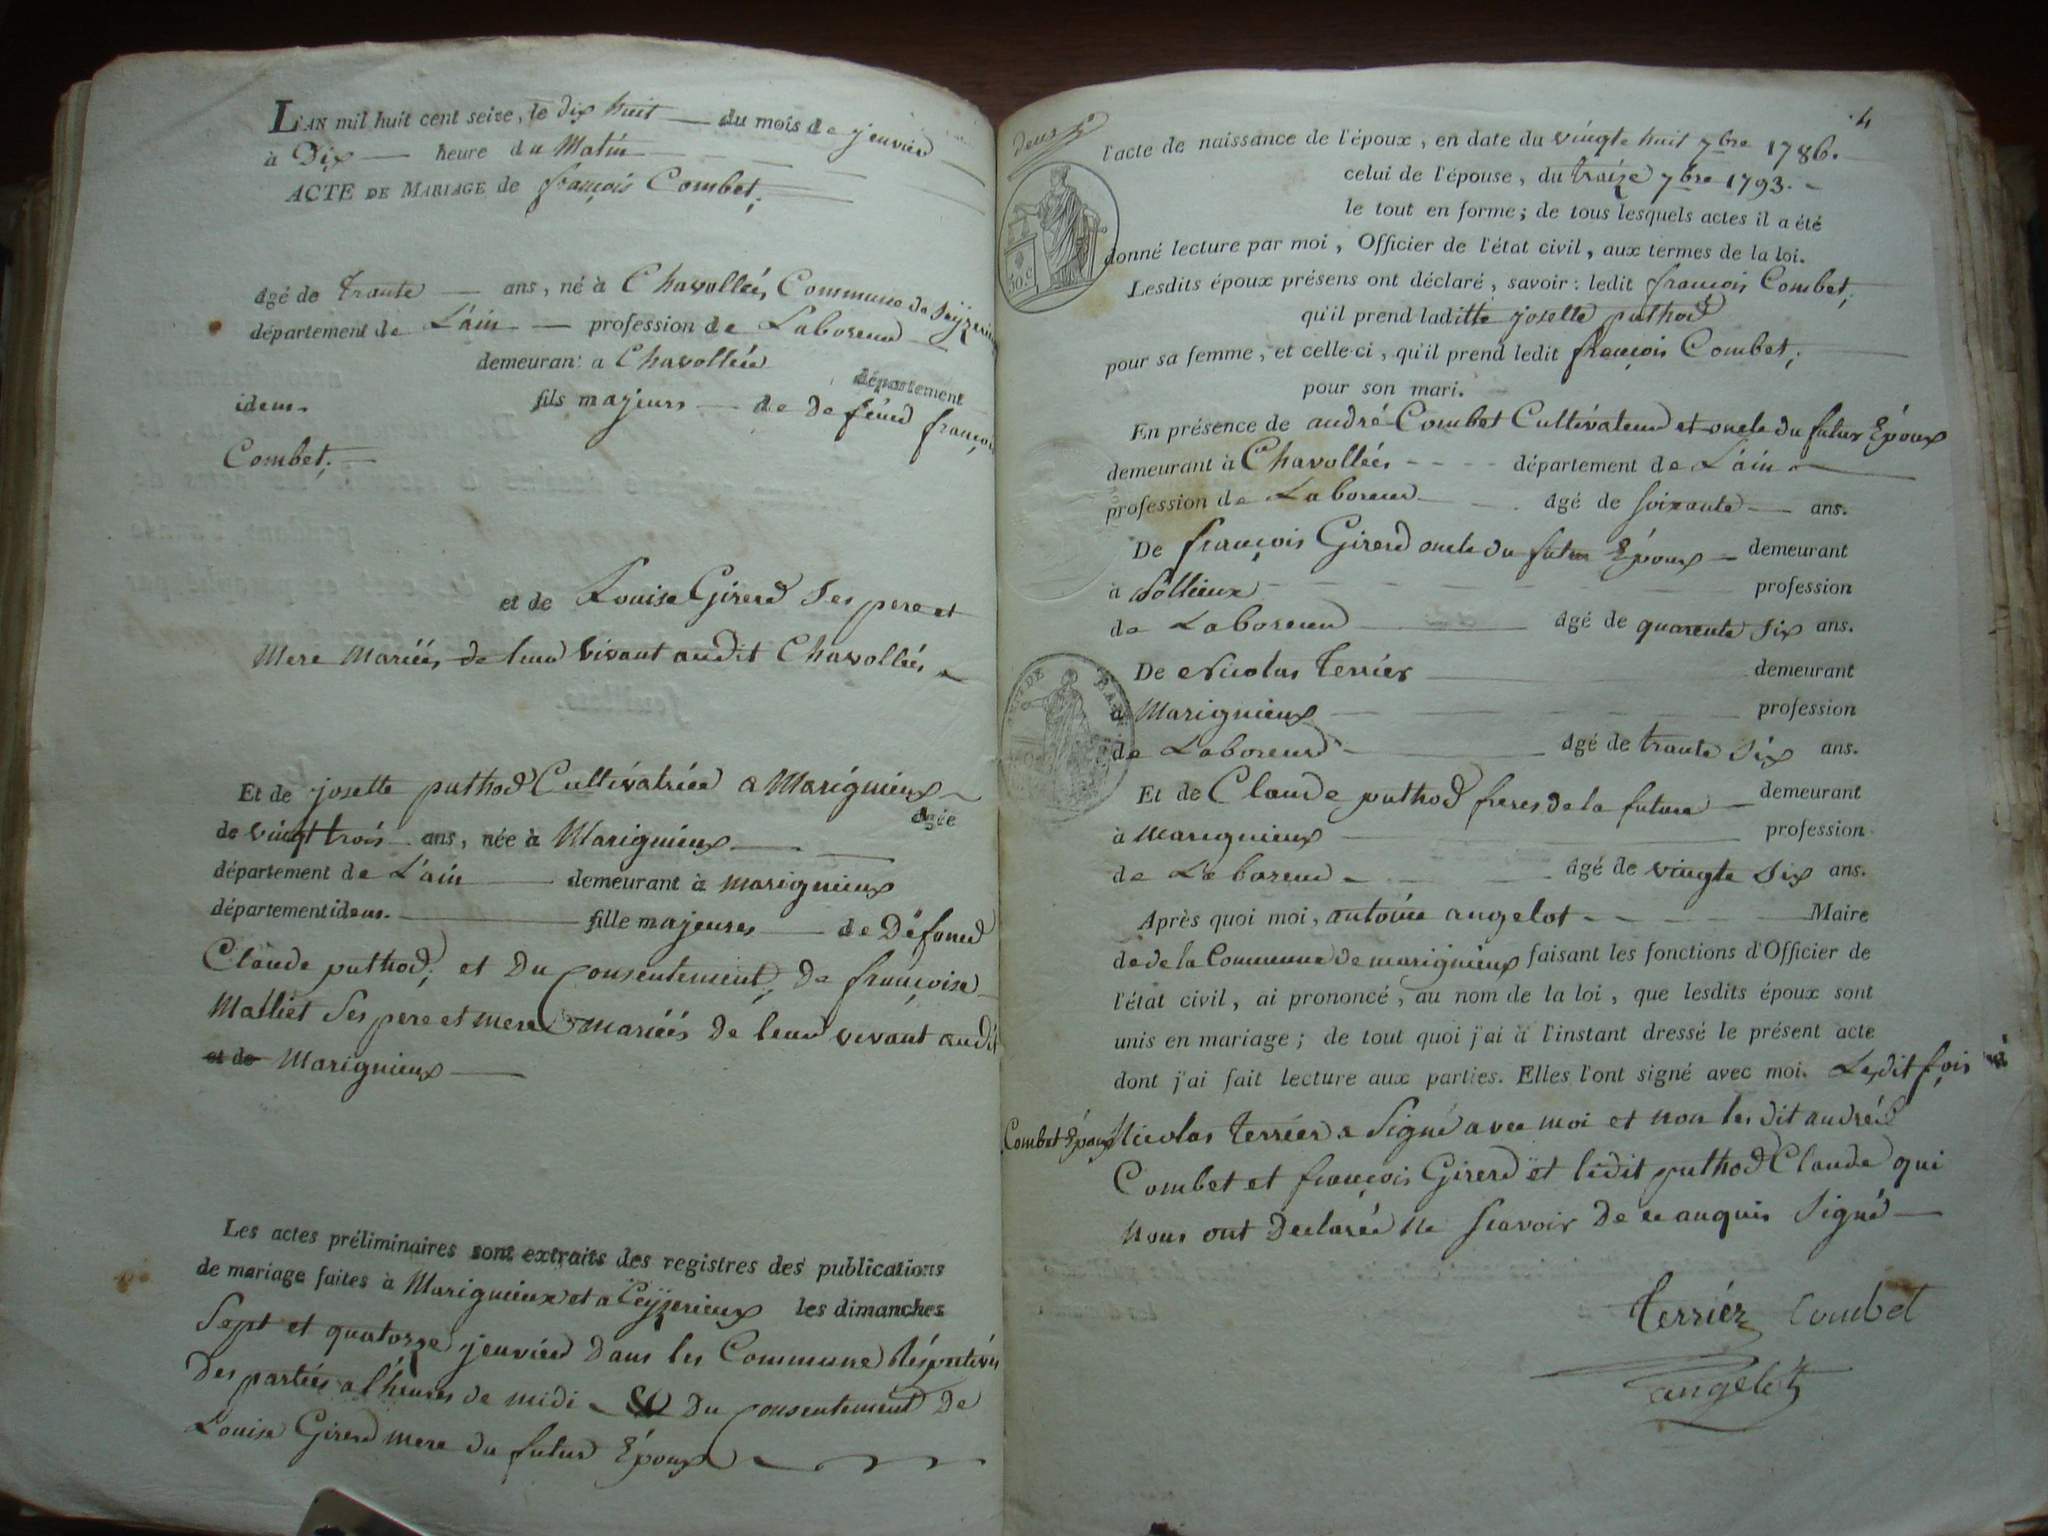 L'AN mil huit cent seize, le dix huit du mois de jenvier
à Dix heure du Matin
ACTE DE MARIAGE de françois Combet,
âgé de trante ans, né à Chavolleés, Commune de
département de L'ain profession de Laboreur
demeurant a Chavolleés département
idem. fils majeurs de defeud françois
Combet,
et de Louise Girerd Ses pere et
Mere Marieés de leur vivant audit Chavolleés
Et de josette puthod Cultivatrice a Marignieux âgée
de vingt trois ans, née à Marignieux
département de L'ain demeurant à marignieux
département idem. fille majeures de Défoud
Claude puthod, et du Consentement, de françoise
Malliet Ses pere et mere marieés de leur vivant audit
et de Marignieux
Les actes préliminaires sont extraits des registres des publications
de mariage faites à Marignieux et a Ceÿzerieux les dimanches
Sept et quatorze jenvier dans les Commune Réspectives
Des partiés a l'heures de midi Du Consentement De
Louise Girerd mere du futur Époux
deux
4
l'acte de naissance de l'époux, en date du vingte huit 7bre 1786.
celui de l'épouse, du traize 7bre 1793.
le tout en forme; de tous lesquels actes il a été
donné lecture par moi, Officier de l'état civil, aux termes de la loi.
Lesdits époux présens ont déclaré, savoir: ledit françois Combet,
qu'il prend laditte josette puthod
pour sa femme, et celle-ci, qu'il prend ledit françois Combet,
pour son mari.
En présence de andré Combet Cultivateur et oncle du futur Époux
demeurant à Chavolleés département de L'ain
profession de Laboreur âgé de soixante ans.
De françois Girerd oncle du futur Époux demeurant
à Sollieux profession
de Laboreur âgé de quarente six ans.
De Nicolas Terrier demeurant
à Marignieux profession
de Laboreur âgé de trante six ans.
Et de Claude puthod freres de la future demeurant
à marignieux profession
de Laboreur âgé de vingte six ans.
Après quoi moi, antoine angelot Maire
de de la Commune de marignieux faisant les fonctions d'Officier de
l'état civil, ai prononcé, au nom de la loi, que lesdits époux sont
unis en mariage; de tout quoi j'ai à l'instant dressé le présent acte
dont j'ai fait lecture aux parties. Elles l'ont signé avec moi. Lesdit fçois
Combet Époux Nicolas Terrier a Signé avec moi et non les dit andré
Combet et françois Girerd et ledit puthod Claude qui
Nous ont Declareé Ne Scavoir De ce anquis Signé
Terrier Combet
angelot
50.c